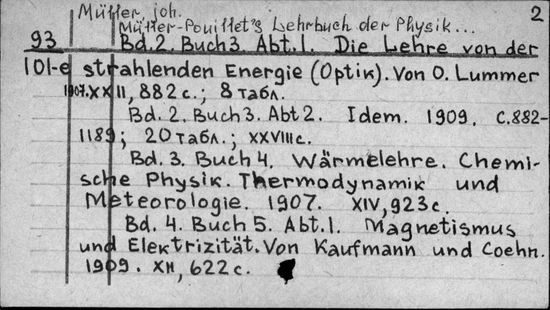 Müller, Joh.
2
Müller-Pouillet's Lehrbuch der Physik...
93 Bd.2. Buch3. Abt.1. Die Lehre von der
101-e strahlenden Energie (Optik). Von O. Lummer
1907. XXII, 882 с.; 8 табл.
Bd. 2. Buch3. Abt 2. Idem. 1909. С.882-
1189; 20 табл.; XXVIII с.
Bd. 3. Buch 4. Wärmelehre. Chemi-
sche Physik. Thermodynamik und
Meteorologie. 1907. XIV, 923 с.
Bd. 4. Buch 5. Abt.1. Magnetismus
und Elektrizität. Von Kaufmann und Coehn.
1909. XII, 622 с.